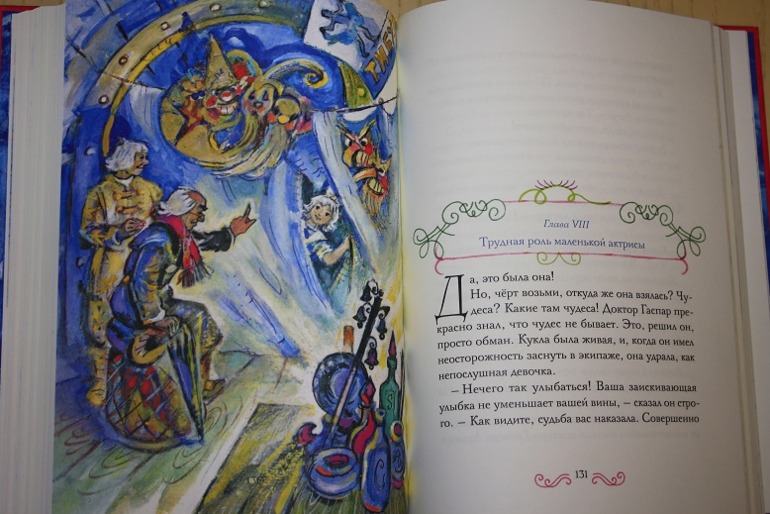 ТИБУ
Глава VIII
Трудная роль маленькой актрисы
Да, это была она!
Но, чёрт возьми, откуда же она взялась? Чу-
деса? Какие там чудеса! Доктор Гаспар пре-
красно знал, что чудес не бывает. Это, решил он,
просто обман. Кукла была живая, и, когда он имел
неосторожность заснуть в экипаже, она удрала, как
непослушная девочка.
– Нечего так улыбаться! Ваша заискивающая
улыбка не уменьшает вашей вины, – сказал он стро-
го. – Как видите, судьба вас наказала. Совершенно
131